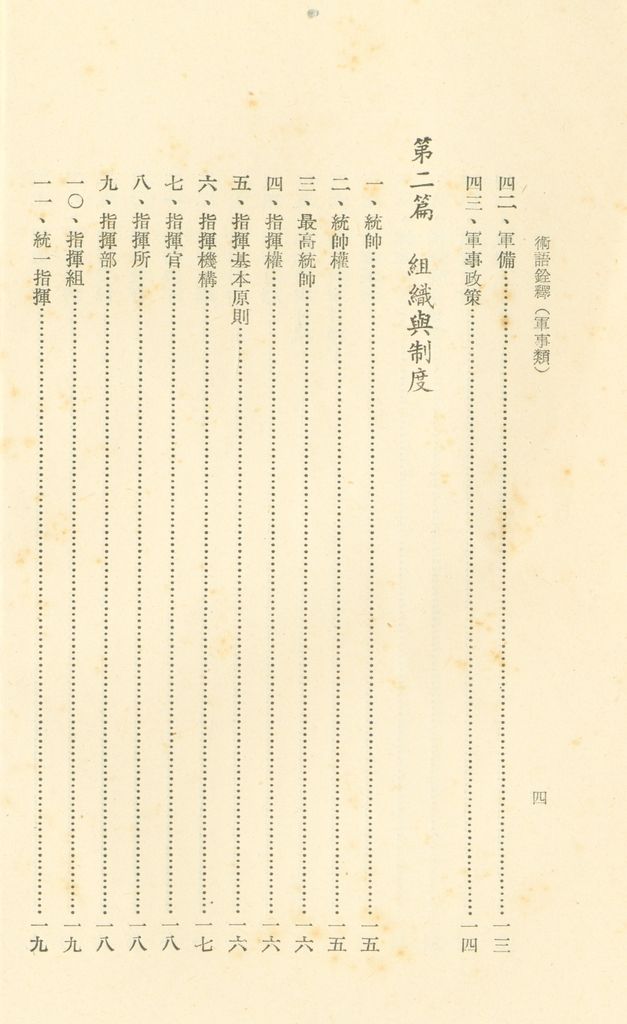 術語銓釋（軍事類）
四
四二、軍備……一三
四三、軍事政策……一四
第二篇　組織與制度
一、統帥……一五
二、統帥權……一五
三、最高統帥……一六
四、指揮權……一六
五、指揮基本原則……一六
六、指揮機構……一七
七、指揮官……一八
八、指揮所……一八
九、指揮部……一八
一〇、指揮組……一九
一一、統一指揮……一九